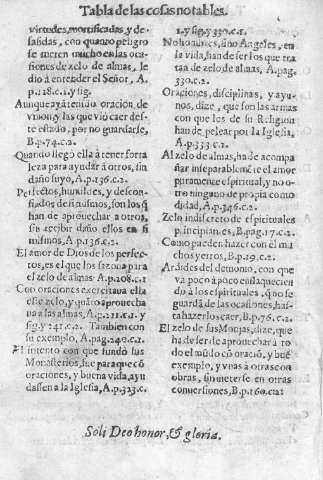 Tabla de las cosas notables.
virtudes, mortificadas, y de-
sasidas, con quanto peligro
se meten mucho en las oca-
siones de zelo de almas, le
dio à entender el Señor, A.
p.128.c.1. y sig.
Aunque aya tenido oracion de
vnion, y las que viò caer des-
te estado, por no guardarse,
B.p.74.c.2.
Quando llegò ella à tener forta
leza para ayudar à otros, sin
daño suyo, A.p.136.c.2.
Perfectos, humildes, y descon-
fiados de si mismos, son los q̃
han de aprouechar à otros,
sin recibir daño ellos en si
mismos, A.p.136.c.2.
El amor de Dios de los perfec-
tos, es el que los sazona para
el zelo de almas A.p.208.c.1
Con oraciones exercitaua ella
este zelo, y quãto aprouecha
ua a las almas, A.p.211.c.1. y
sig. y 241.c.2. Tambien con
su exemplo, A.pag.240.c.2.
El intento con que fundò sus
Monasterios, fue para que cõ
oraciones, y buena vida, ayu
dassen a la Iglesia, A.p.323.c.
1. y sig. y 330.c.1.
No hombres, sino Angeles, en
la vida, han de ser los que tra
tan de zelo de almas, A.pag.
330.c.2.
Oraciones, disciplinas, y ayu-
nos, dize, que son las armas
con que los de su Religion
han de pelear por la Iglesia,
A.p.333.c.2.
Al zelo de almas, ha de acompa
ñar inseparablemẽte el amor
puramente espiritual, y no o-
tro ninguno de propia como
didad, A.p.346.c.2.
Zelo indiscreto de espirituales
principiantes, B.pag.17.c.2.
Como pueden hazer con èl mu
chos yerros, B.p.19.c.2.
Ardides del demonio, con que
va poco à poco enflaqueciẽn
do à los espirituales, q̃ no se
guardã de las ocasiones, has-
ta hazerlos caer, B.p.76.c.2.
El zelo de sus Monjas, dize, que
ha de ser de aprouechar à to
do el mũdo cõ oraciõ, y buẽ
exemplo, y vnas à otras con
obras, sin meterse en otras
conuersiones, B.p.160.c.2.
Soli Deo honor, & gloria.